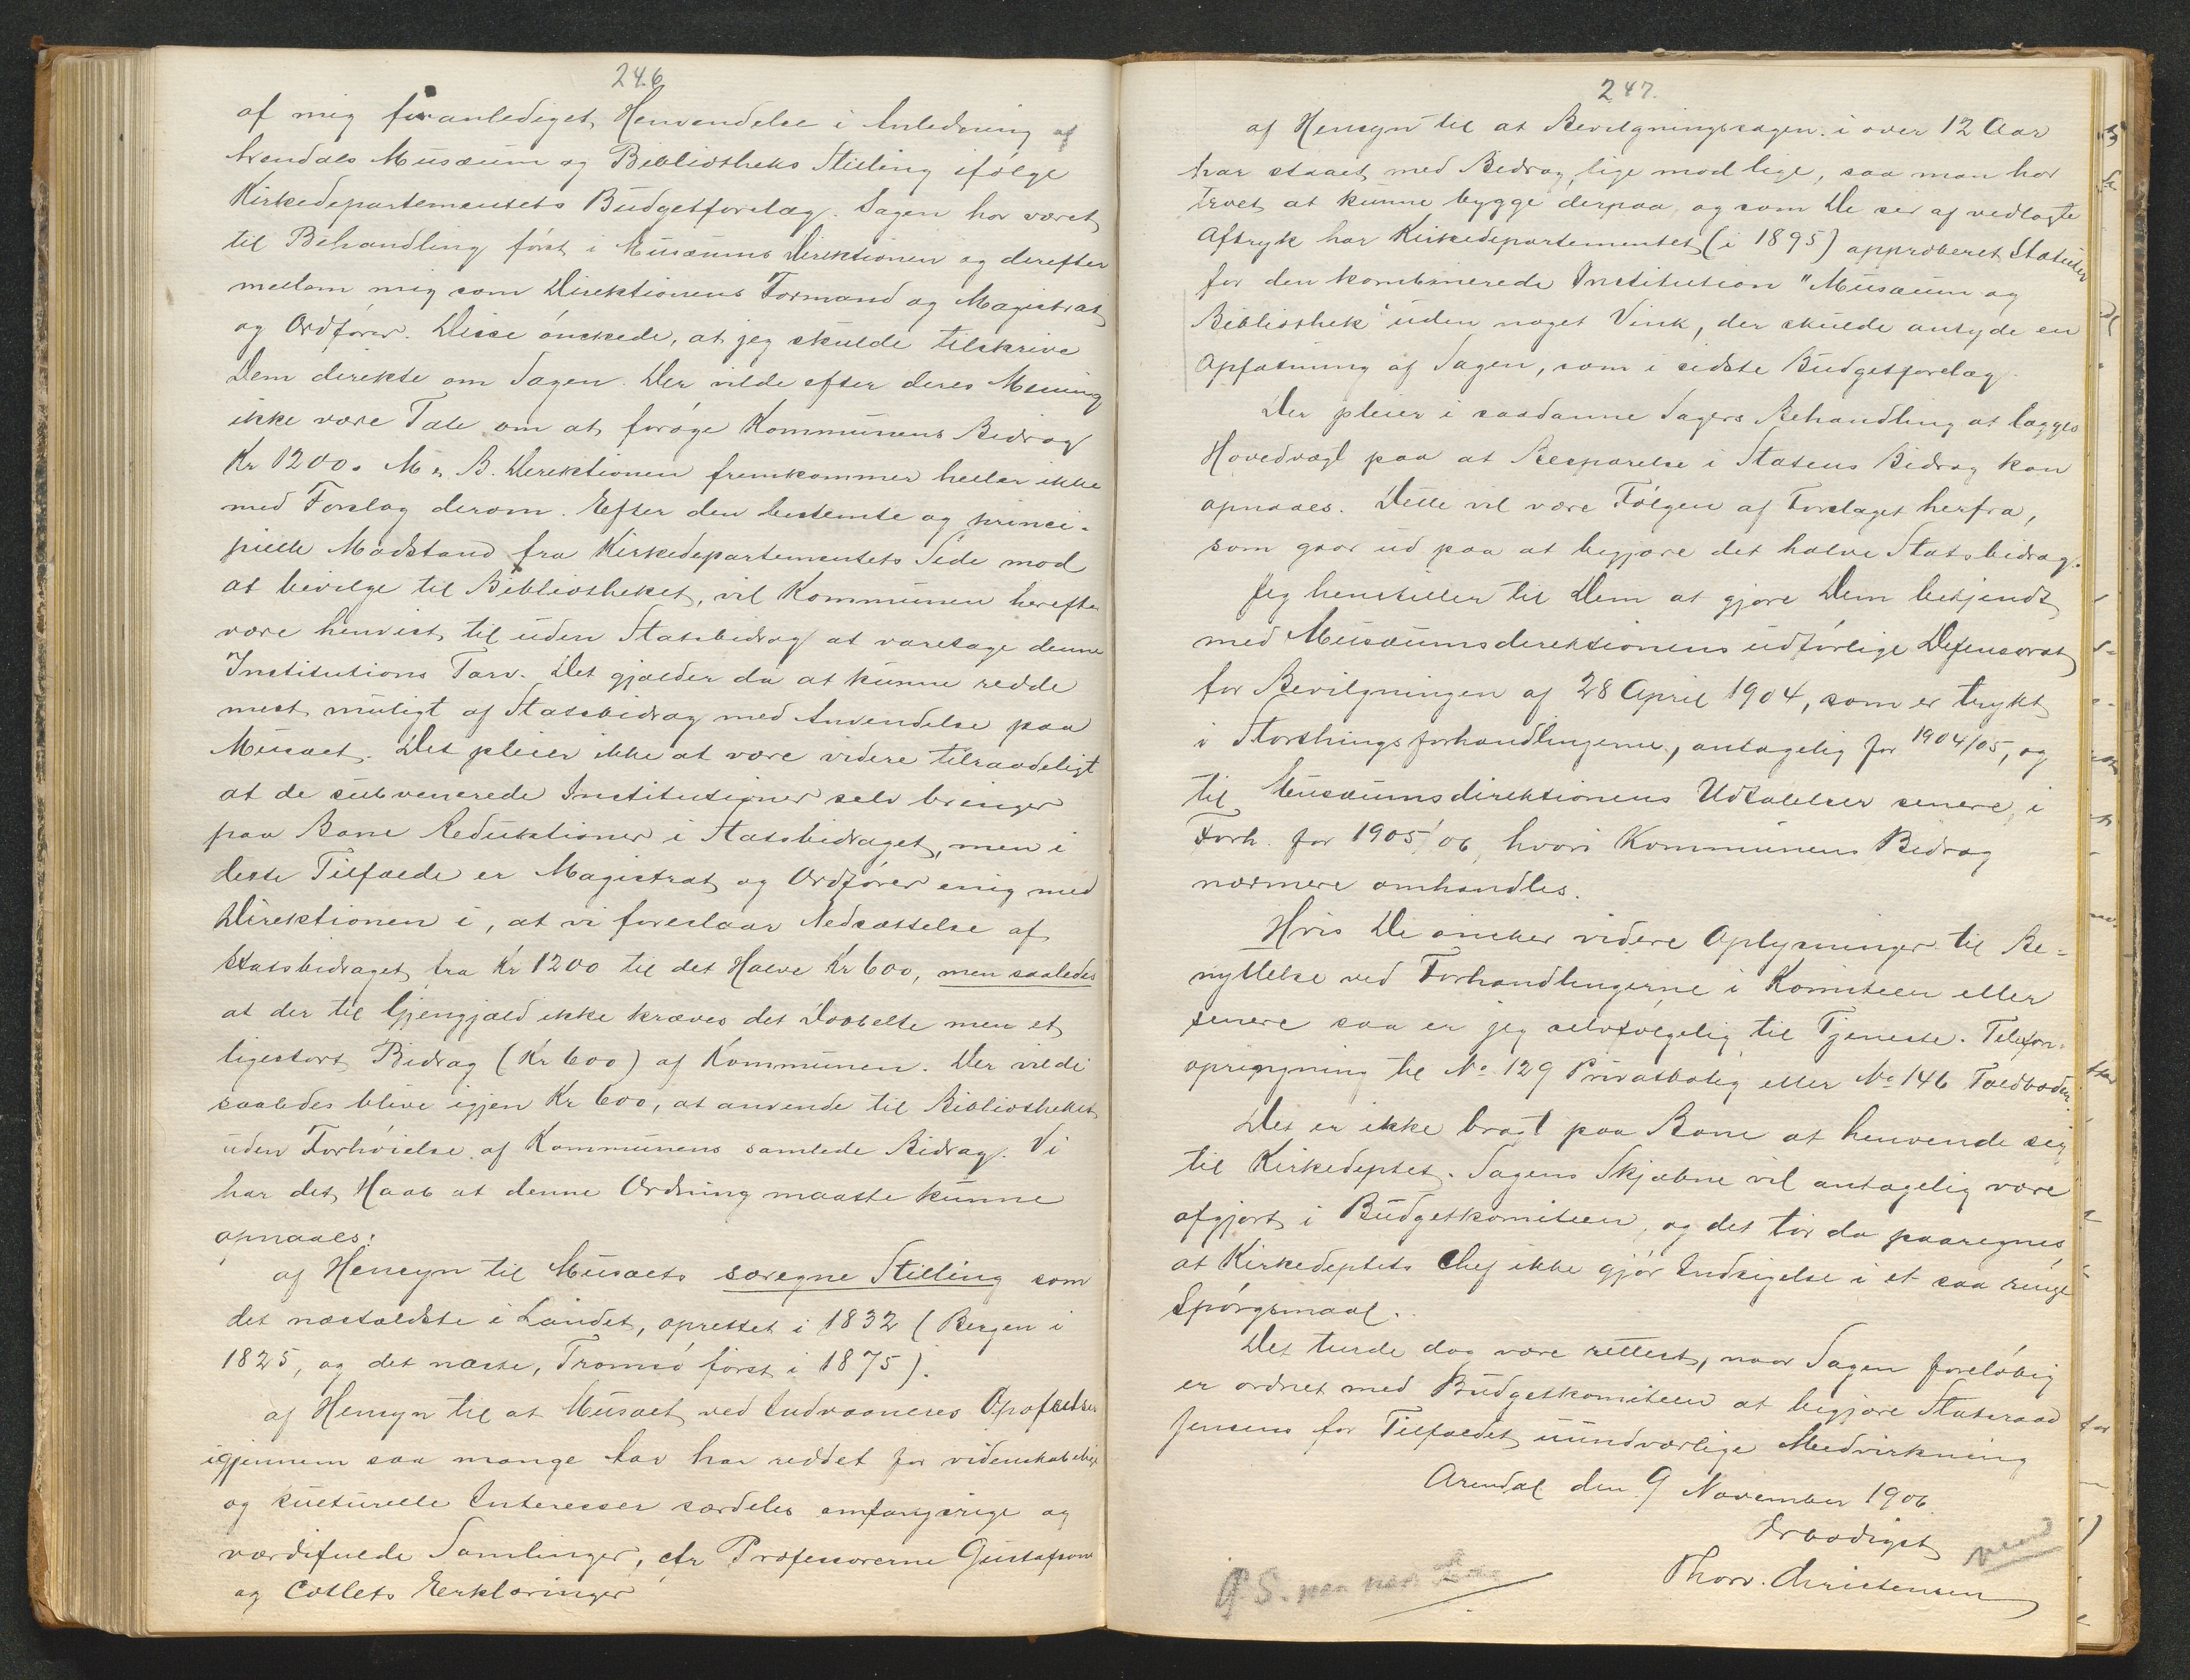 246
af mig foranlediget Henvendelse i Anledning af
Arendals Musæum og Bibliotheks Stilling ifølge
Kirkedepartementets Budgetforslag. Sagen har været
til Behandling først i Musæums Direktionen og derefter
mellem mig som Direktionens Formand og Magistrat
og Ordfører. Disse ønskede, at jeg skulde tilskrive
Dem direkte om Sagen. Der vilde efter deres Mening
ikke være Tale om at forøge Kommunens Bidrag
Kr 1200. M. B. Direktionen fremkommer heller ikke
med Forslag derom. Efter den bestemte og princi-
pielle Modstand fra Kirkedepartementets Side mod
at bevilge til Bibliotheket, vil Kommunen herefter
være henvist til uden Statsbidrag at varetage denne
Institutions Tarv. Det gjælder da at kunne redde
mest muligt af Statsbidrag med Anvendelse paa
Musæet. Det pleier ikke at være videre tilraadeligt
at de subvenerede Institutioner selv bringer
paa Bane Reduktioner i Statsbidraget, men i
dette Tilfælde er Magistrat og Ordfører enig med
Direktionen i, at vi foreslaar Nedsættelse af
Statsbidraget fra Kr 1200 til det Halve Kr 600, men saaledes
at der til Gjengjæld ikke kræves det Dobbelte men et
ligestort Bidrag (Kr 600) af Kommunen. Der vilde
saaledes blive igjen Kr 600, at anvende til Bibliotheket
uden Forhøielse af Kommunens samlede Bidrag. Vi
har det Haab at denne Ordning maatte kunne
opnaaes:
af Hensyn til Musæets særegne Stilling som
det næstældste i Landet, oprettet i 1832 (Bergen i
1825, og det næste, Tromsø først i 1875).
af Hensyn til at Musæet ved Indvaaneres Opofrelser
igjennem saa mange Aar har reddet for videnskabelige
og kulturelle Interesser særdeles omfangsrige og
værdifulde Samlinger, cfr Professorerne Gustafsons
og Colletts Erklæringer
247.
af Hensyn til at Bevilgningssagen i over 12 Aar
har staaet med Bidrag, lige mod lige, saa man har
troet at kunne bygge derpaa, og som De ser af vedlagte
Aftryk har Kirkedepartementet (i 1895) approberet Statuter
for den kombinerede Institution "Musæum og
Bibliothek" uden noget Vink, der skulde antyde en
Opfatning af Sagen, som i sidste Budgetforslag.
Der pleier i saadanne Sagers Behandling at lægges
Hovedvægt paa at Besparelse i Statens Bidrag kan
opnaaes. Dette vil være Følgen af Forslaget herfra,
som gaar ud paa at begjære det halve Statsbidrag.
Jeg henstiller til Dem at gjøre Dem bekjendt
med Musæumsdirektionens udførlige Defensorat
for Bevilgningen af 28 April 1904, som er trykt
i Storthingsforhandlingerne, antagelig for 1904/05, og
til Musæumsdirektionens Udtalelser senere, i
Forh. for 1905/06, hvori Kommunens Bidrag
nærmere omhandles.
Hvis De ønsker videre Oplysninger til Be-
nyttelse ved Forhandlingerne i Komiteen eller
senere saa er jeg selvfølgelig til Tjeneste. Telefon-
opringning til No 129 Privatbolig eller No 146 Toldboden.
Det er ikke bragt paa Bane at henvende sig
til Kirkedeptet. Sagens Skjæbne vil antagelig være
afgjort i Budgetkomiteen, og det tør da paaregnes
at Kirkedeptets Chef ikke gjør Indsigelse i et saa ringe
Spørgsmaal.
Det turde dog være rettest, naar Sagen foreløbig
er ordnet med Budgetkomiteen at begjære Statsraad
Jensens for Tilfældet uundværlige Medvirkning
Arendal den 9 November 1906.
Ærbødigst
Thorv. Christensen
P.S.